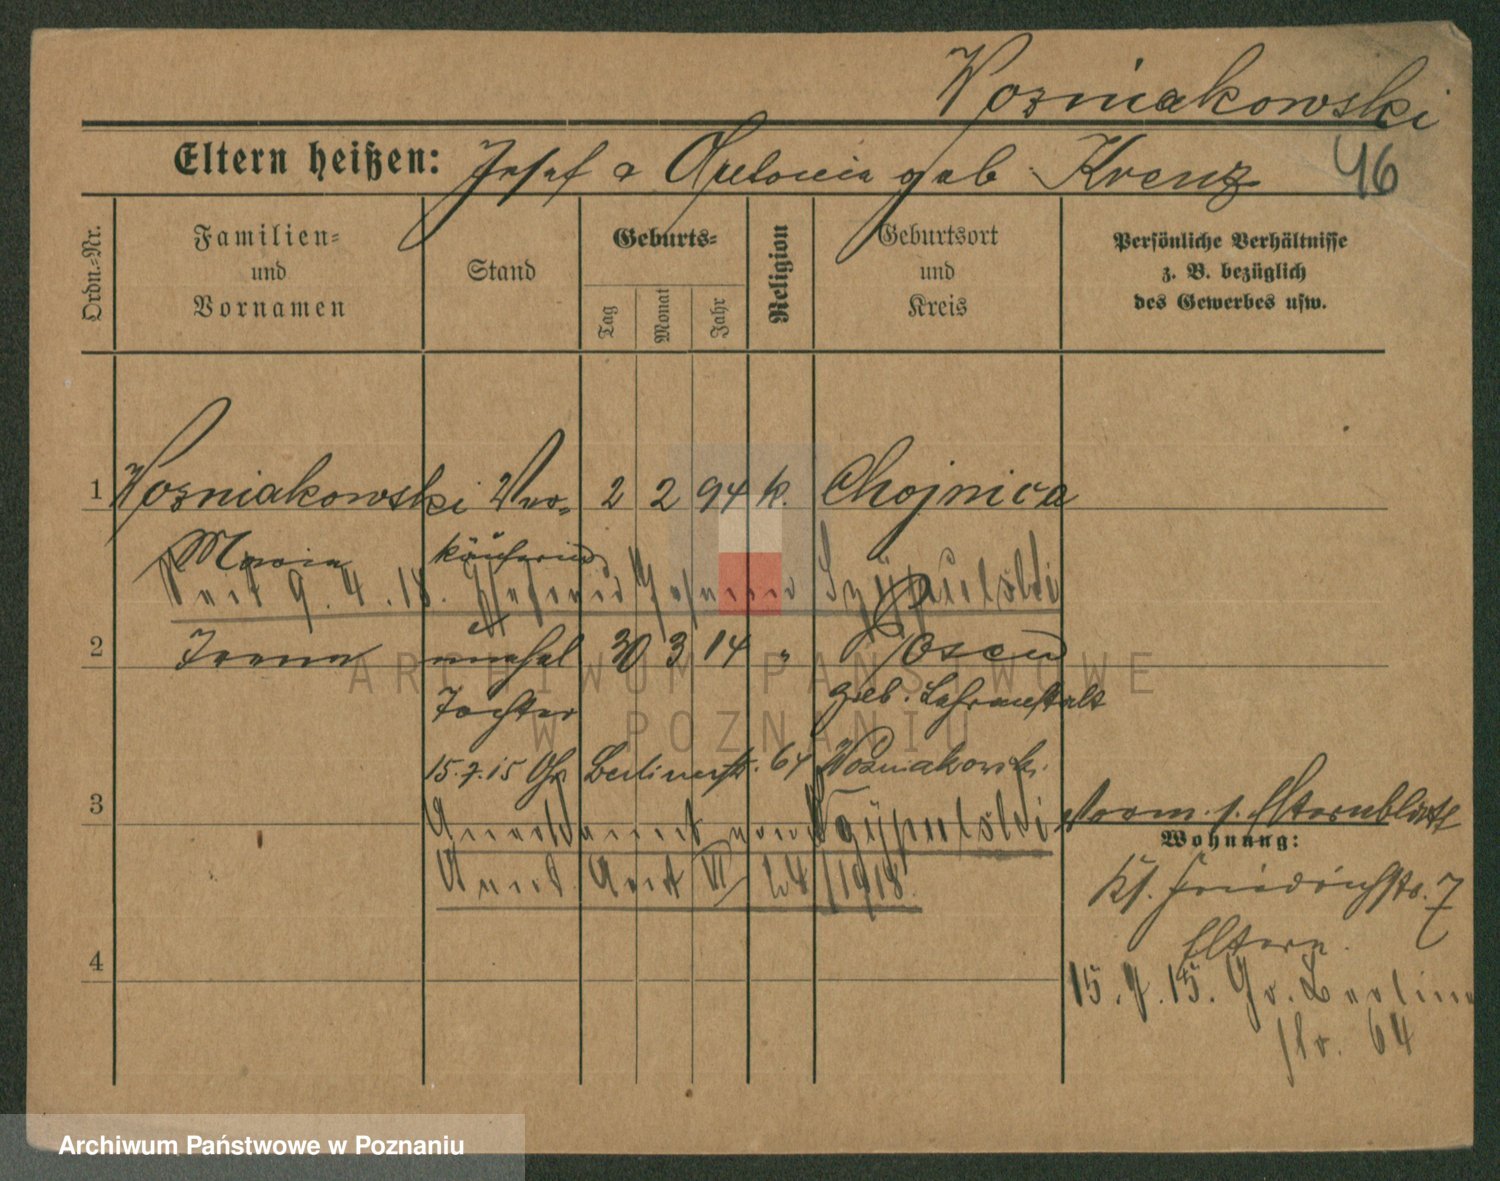 Wozniakowski
Eltern heißen: Josef & Antonie geb. Krenz 46
Ordn.=Nr.
Familien=
und
Vornamen
Stand
Geburts=
Tag
Monat
Jahr
Religion
Geburtsort
und
Kreis
Persönliche Verhältnisse
z. B. bezüglich
des Gewerbes usw.
1 Wozniakowski Ver= 2 2 94 k. Chojnica
Maria käuferin
Seit 9.4.18.
2 Irena unehel 30 3 14 " Posen
Tochter geb. Lehranstalt
15.7.15 Berlinerstr. 64 Wozniakowski.
3
VI 24/1918.
Wohnung:
Kl. Friedrichstr. 7
Eltern.
4
15.7.15. Gr. Berliner
str. 64
ARCHIWUM PAŃSTWOWE
W POZNANIU
Archiwum Państwowe w Poznaniu